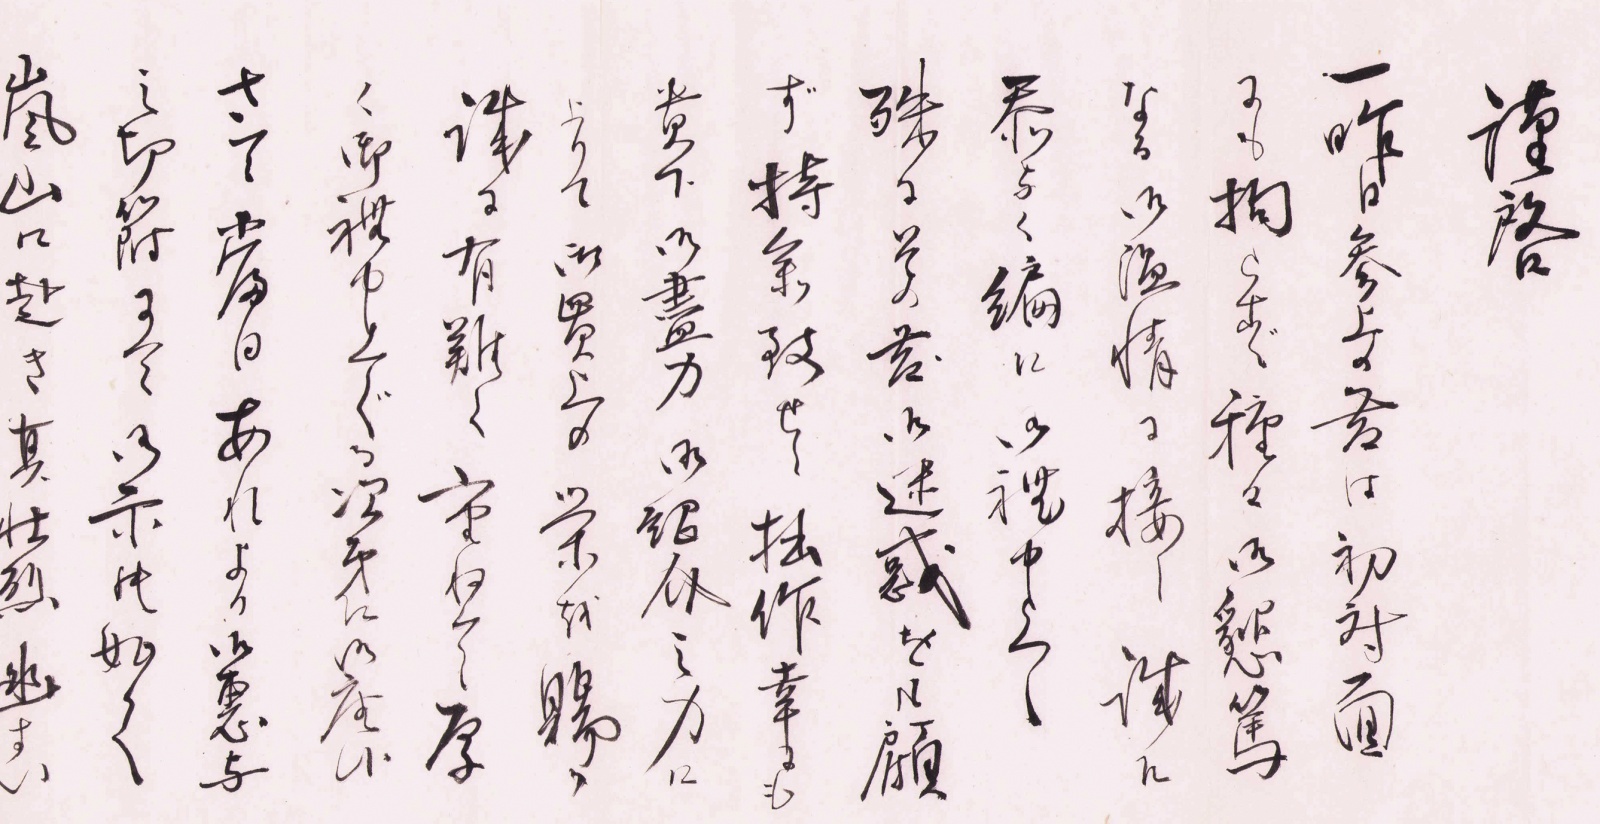 謹啓
一昨日参上の節は初対面
にも拘らず種々御懇篤
なる御温情に接し誠に
忝なく編に御礼申上く
殊に其の節御迷惑をも顧
ず持参致せし拙作幸にも
貴下御盡力御紹介之力に
よりて御買上の栄を賜り
誠に有難く重ねて厚
く御礼申上ぐる次第に御座候
さて當日あれより御恵与
之切符にて御示の如く
嵐山に赴き其壮烈